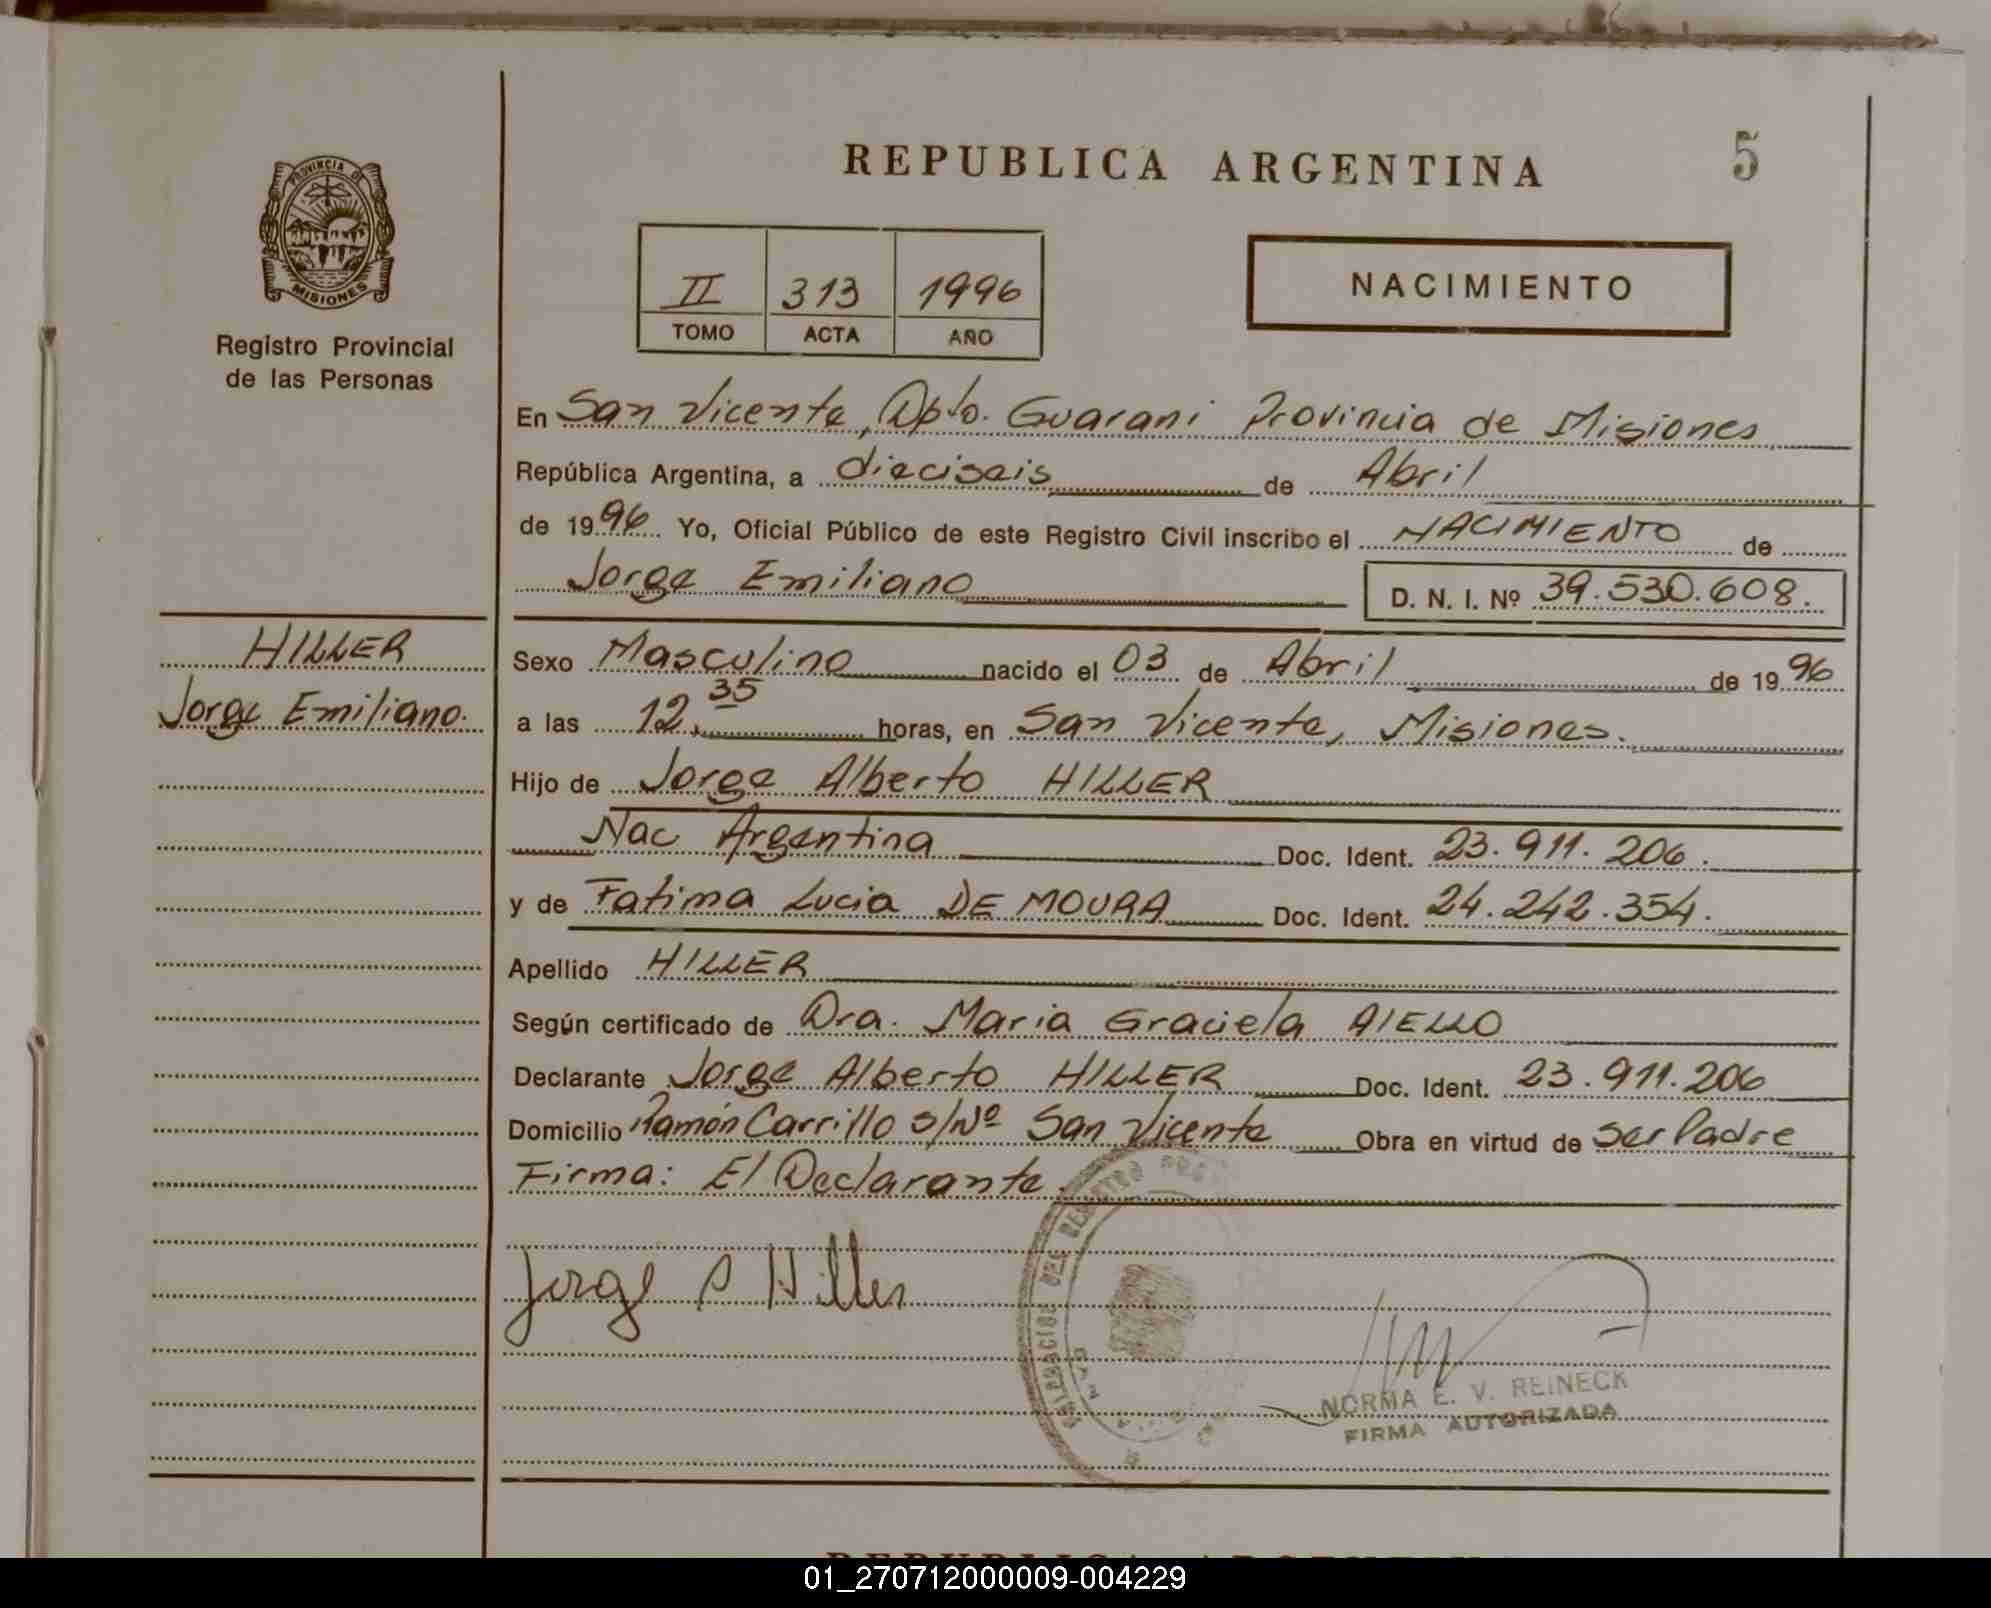 REPUBLICA ARGENTINA
5
PROVINCIA DE
MISIONES
Registro Provincial
de las Personas
II 313 1996
TOMO ACTA AÑO
NACIMIENTO
En San Vicente, Dpto. Guarani Provincia de Misiones
República Argentina, a dieciseis de Abril
de 1996 Yo, Oficial Público de este Registro Civil inscribo el NACIMIENTO de
Jorge Emiliano D. N. I. Nº 39.530.608.
HILLER
Jorge Emiliano.
Sexo Masculino nacido el 03 de Abril de 1996
a las 12,35 horas, en San Vicente, Misiones.
Hijo de Jorge Alberto HILLER
Nac Argentina Doc. Ident. 23.911.206.
y de Fatima Lucia DE MOURA Doc. Ident. 24.242.354.
Apellido HILLER
Según certificado de Dra. Maria Graciela AIELLO
Declarante Jorge Alberto HILLER Doc. Ident. 23.911.206
Domicilio Ramón Carrillo s/Nº San Vicente Obra en virtud de Ser Padre
Firma: El Declarante.
Jorge A Hiller
DELEGACION DEL REGISTRO
NORMA E. V. REINECK
FIRMA AUTORIZADA
REPUBLICA ARGENTINA
01_270712000009-004229